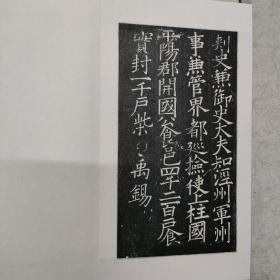 刺史兼御史大夫知涇州軍州
事兼管界都廵撿使上柱國
平陽郡開國公食邑四千二百戶食
實封一千戶柴禹錫